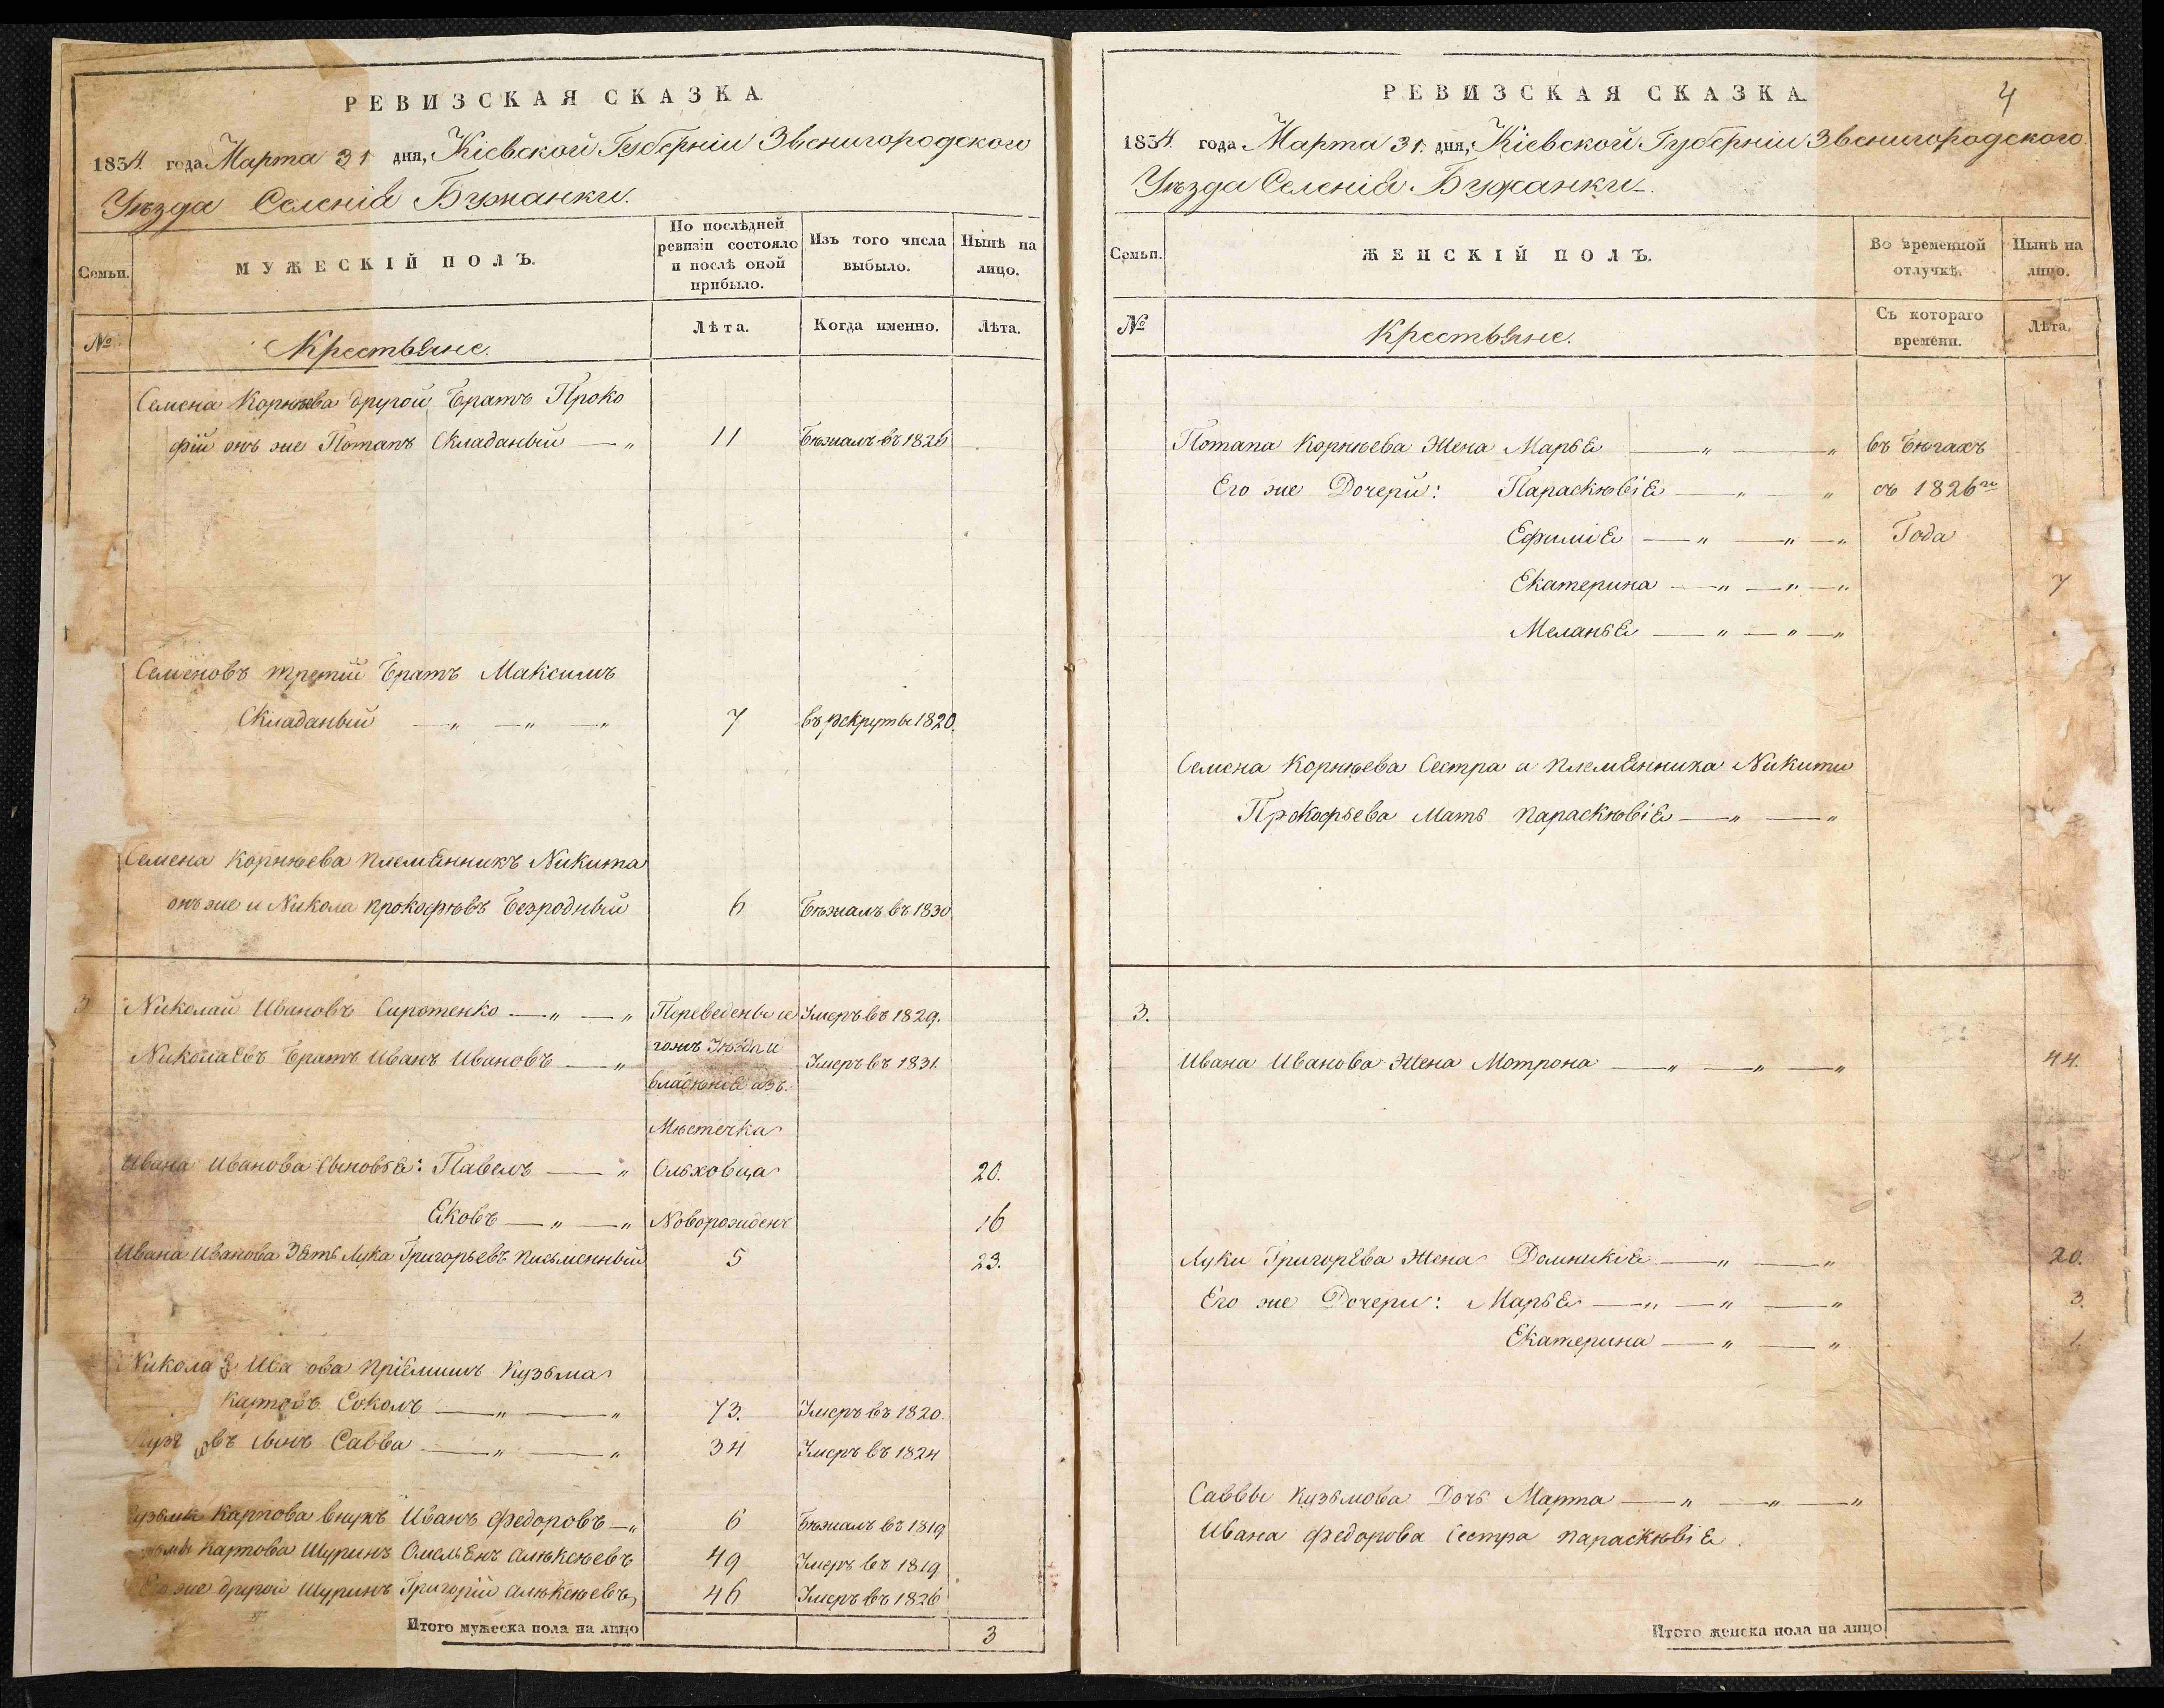 РЕВИЗСКАЯ СКАЗКА.
1834. года Марта 31 дня, Кіевской Губерніи Звенигородского
Уѣзда Селенія Бужанки.
Семьи.
МУЖЕСКІЙ ПОЛЪ.
По послѣдней ревизіи состояло и послѣ оной прибыло.
Изъ того числа выбыло.
Нынѣ на лицо.
№
Крестьяне.
Лѣта.
Когда именно.
Лѣта.
Семена Корнѣева другой Братъ Проко
фій онъ же Потапъ Складаный — „ 11 Бѣжалъ въ 1826
Семеновъ третій Братъ Максимъ
Складаный — „ — „ — „ 7 въ рекруты 1820.
Семена Корнѣева племянникъ Никита
онъ же и Никола прокофѣвъ Безродный 6 Бѣжалъ въ 1830
3 Николай Ивановъ Сиротенко — „ — „ Переведены и Умеръ въ 1829.
Николаевъ Братъ Иванъ Ивановъ — „ Умеръ въ 1831.
владѣнія изъ
Мѣстечка
Ивана Иванова Сыновья: Павелъ — „ Ольховца 20.
Яковъ — „ — „ Новорожденъ 16
Ивана Иванова Зять Лука Григорьевъ письменный 5 23.
Никола Ива ова пріёмышъ Кузьма
Карповъ Соколъ — „ — „ 73. Умеръ въ 1820.
овъ сынъ Савва — „ — „ 34 Умеръ въ 1824
Карпова внукъ Иванъ федоровъ — „ 6 Бѣжалъ въ 1819
Карпова Шуринъ Омельянъ алѣксѣевъ 49 Умеръ въ 1819
Его же другой шуринъ Григорій алѣксѣевъ, 46 Умеръ въ 1826
Итого мужеска пола на лицо 3
РЕВИЗСКАЯ СКАЗКА.
4
1834. года Марта 31. дня, Кіевской Губерніи Звенигородского
Уѣзда Селенія Бужанки.
Семьи.
ЖЕНСКІЙ ПОЛЪ.
Во временной отлучкѣ.
Нынѣ на лицо.
№
Крестьяне.
Съ котораго времени.
Лѣта.
Потапа Корнѣева Жена Марья — „ — „ въ бѣгахъ
Его же Дочери: Параскѣвія — „ — „ съ 1826го
Ефимія — „ — „ — „ Года
Екатерина — „ — „ — „ 7
Меланья — „ — „ — „
Семена Корнѣева Сестра а племянника Никиты
Прокофьева Мать параскѣвія — „ — „
3.
Ивана Иванова Жена Мотрона — „ — „ — „ 44.
Луки Григорева Жена Домникія — „ — „ 20.
Его же Дочери: Марья — „ — „ — „ 3.
Екатерина — „ — „ 1.
Саввы Кузьмова Дочь Марта — „ — „ — „
Ивана федорова Сестра параскѣвія.
Итого женска пола на лицо